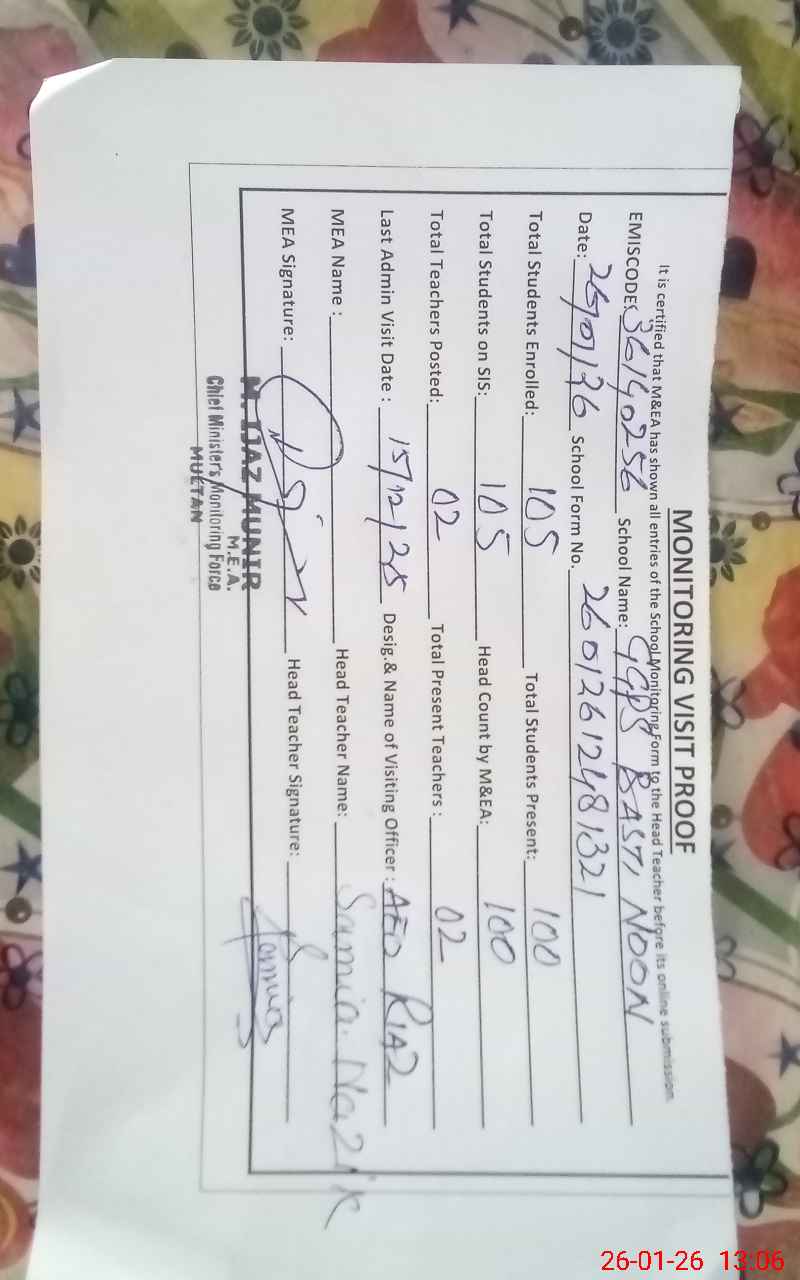 MONITORING VISIT PROOF
It is certified that M&EA has shown all entries of the School Monitoring Form to the Head Teacher before its online submission.
EMISCODE: 36140256 School Name: GGPS BASTI NOON
Date: 26/01/26 School Form No. 26012612481321
Total Students Enrolled: 105 Total Students Present: 100
Total Students on SIS: 105 Head Count by M&EA: 100
Total Teachers Posted: 02 Total Present Teachers : 02
Last Admin Visit Date : 15/12/25 Desig.& Name of Visiting Officer : AEO RIAZ
MEA Name : Head Teacher Name: Samia Nazik
MEA Signature: Head Teacher Signature: Samia
M. IJAZ MUNIR
M.E.A.
Chief Minister's Monitoring Force
MULTAN
26-01-26 13:06